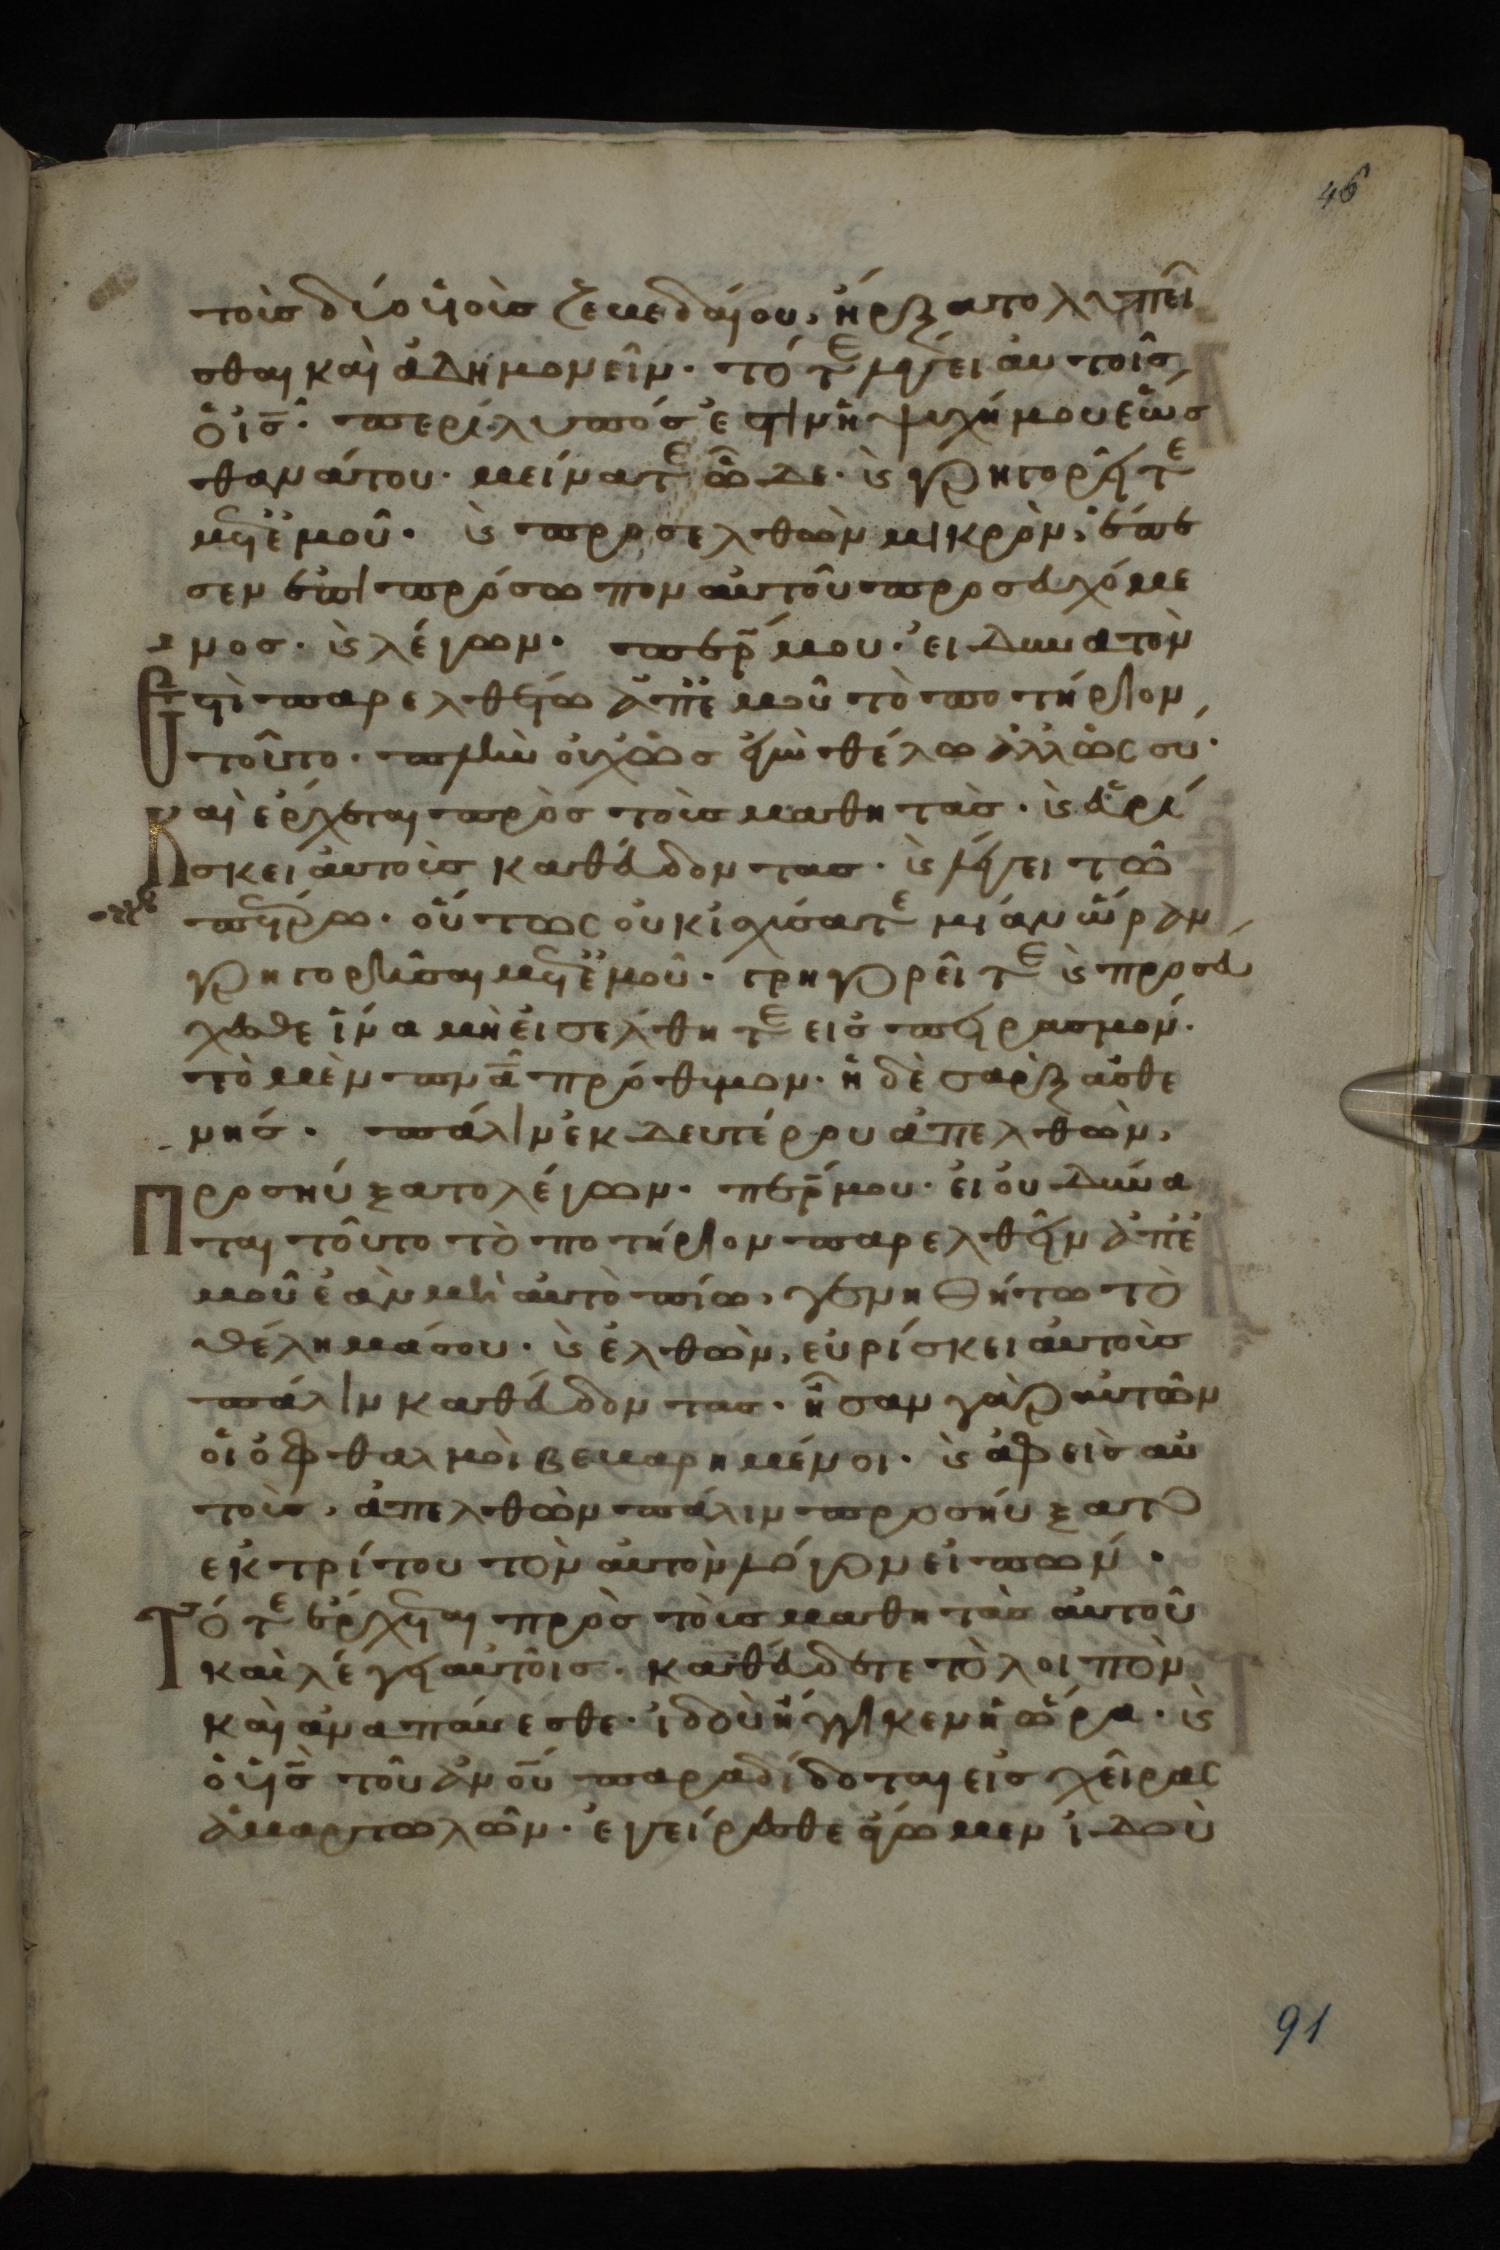 46
τοὺσ δύο υἱοὺσ ζεβεδαίου, ἤρξατο λυπεῖ
σθαι καὶ ἀδημονεῖν. τότε λέγει αὐτοῖσ
ὁ ις̅. περίλυπόσ ἐστιν ἡ ψυχή μου ἕωσ
θανάτου. μείνατε ὧδε. κ̀ γρηγορεῖτε
μετ ἐμοῦ. κ̀ προσελθὼν μικρὸν, ἔπε
σεν ἐπι πρόσωπον αὐτοῦ προσευχόμε
νοσ. κ̀ λέγων. περ̅ μου. εἰ δυνατὸν
ἐστὶ παρελθέτω ἀπ ἐμοῦ τὸ ποτήριον
τοῦτο. πλὴν οὐχ ὡσ ἐγὼ θέλω ἀλλ ὡς συ.
Καὶ ἔρχεται πρὸσ τοὺσ μαθητὰσ. κ̀ εὑρί
σκει αὐτοὺσ καθεύδοντασ. κ̀ λέγει τῶ
πέτρω. οὕτως οὐκ ἰσχύσατε μίαν ὥραν
γρηγορῆσαι μετ ἐμοῦ. γρηγορεῖτε κ̀ προσεύ
χεσθε ἵνα μὴ εἰσέλθητε εἰσ πειρασμόν.
τὸ μὲν πνα̅ πρόθυμον. ἡ δὲ σὰρξ ἀσθε
νήσ. πάλιν ἐκ δευτέρου ἀπελθὼν,
Προσηύξατο λέγων. περ̅ μου. εἰ οὐ δύνα
ται τοῦτο τὸ ποτήριον παρελθεῖν ἀπ ἐ
μοῦ ἐὰν μὴ αὐτὸ πίω, γενηθήτω τὸ
θέλημά σου. κ̀ ἐλθὼν, εὑρίσκει αὐτοὺσ
πάλιν καθεύδοντασ. ἦσαν γὰρ αὐτῶν
οἱ ὀφθαλμοὶ βεβαρημένοι. κ̀ ἀφεὶσ αὐ
τοὺσ, ἀπελθὼν πάλιν προσηύξατο
ἐκ τρίτου τὸν αὐτὸν λόγον εἰπών.
Τότε ἔρχεται πρὸσ τοὺσ μαθητὰσ αὐτοῦ
καὶ λέγει αὐτοῖσ. καθεύδετε τὸ λοιπὸν
καὶ ἀναπαύεσθε. ἰδοὺ ἤγγικεν ἡ ὥρα. κ̀
ὁ υἱσ̅ τοῦ ανου̅ παραδίδοται εἰσ χεῖρας
ἁμαρτωλῶν. ἐγείρεσθε ἄγωμεν ἰδοὺ
91